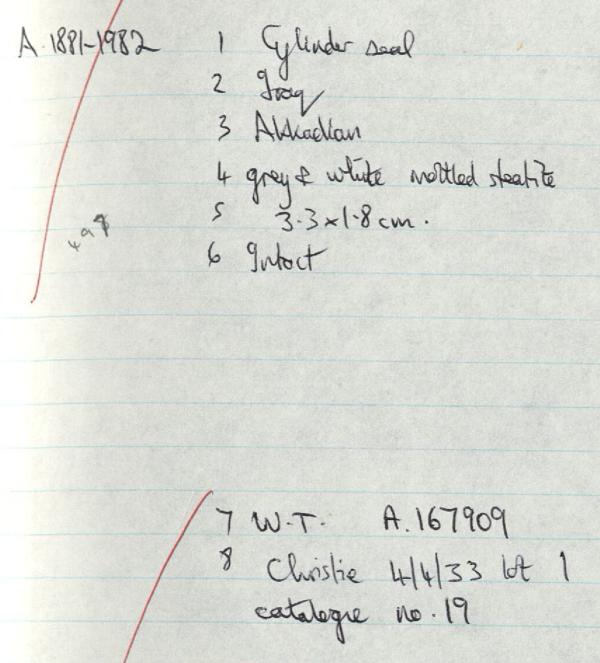 A.1881-1982 1 Cylinder seal
2 Iraq
3 Akkadian
4 grey & white mottled steatite
5 3.3 x 1.8 cm.
6 Intact
7 W.T. A.167909
8 Christie 4/4/33 lot 1
catalogue no. 19